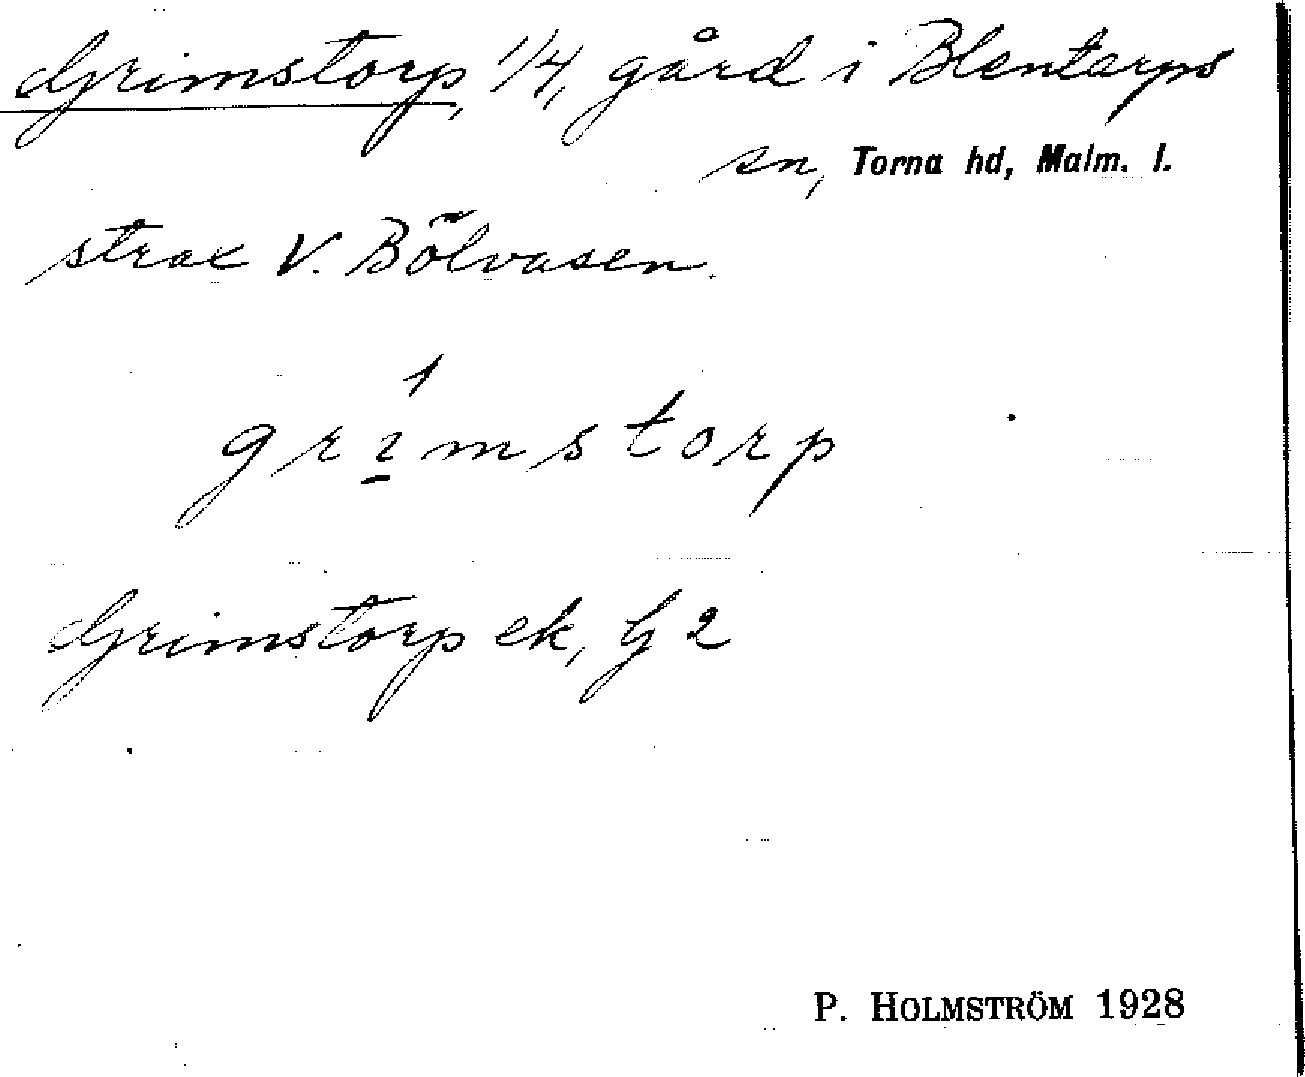 Grimstorp, 1/4, gård i Blentarps
sn, Torna hd, Malm. l.
strax V. Bölvasen.
1
grımstorp
Grimstorp ek, G 2
P. HOLMSTRÖM 1928